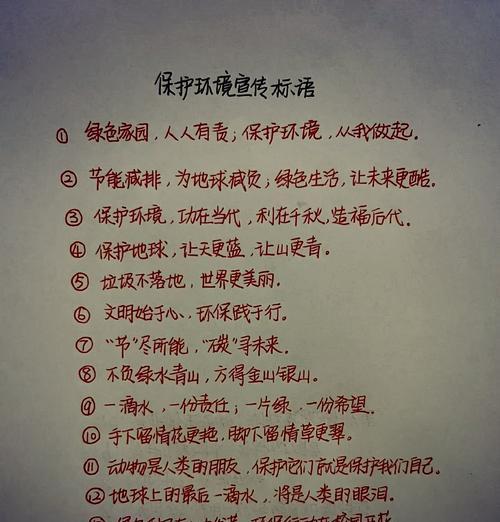 保护环境宣传标语
① 绿色家园，人人有责；保护环境，从我做起。
② 节能减排，为地球减负；绿色生活，让未来更酷。
③ 保护环境，功在当代，利在千秋，造福后代。
④ 保护地球，让天更蓝，让山更青。
⑤ 垃圾不落地，世界更美丽。
⑥ 文明始于心，环保践于行。
⑦ “节”尽所能，“碳”寻未来。
⑧ 不负绿水青山，方得金山银山。
⑨ 一滴水，一份责任；一片绿，一份希望。
⑩ 手下留情花更艳，脚下留情草更翠。
⑪ 动物是人类的朋友，保护它们就是保护我们自己。
⑫ 地球上的最后一滴水，将是人类的眼泪。